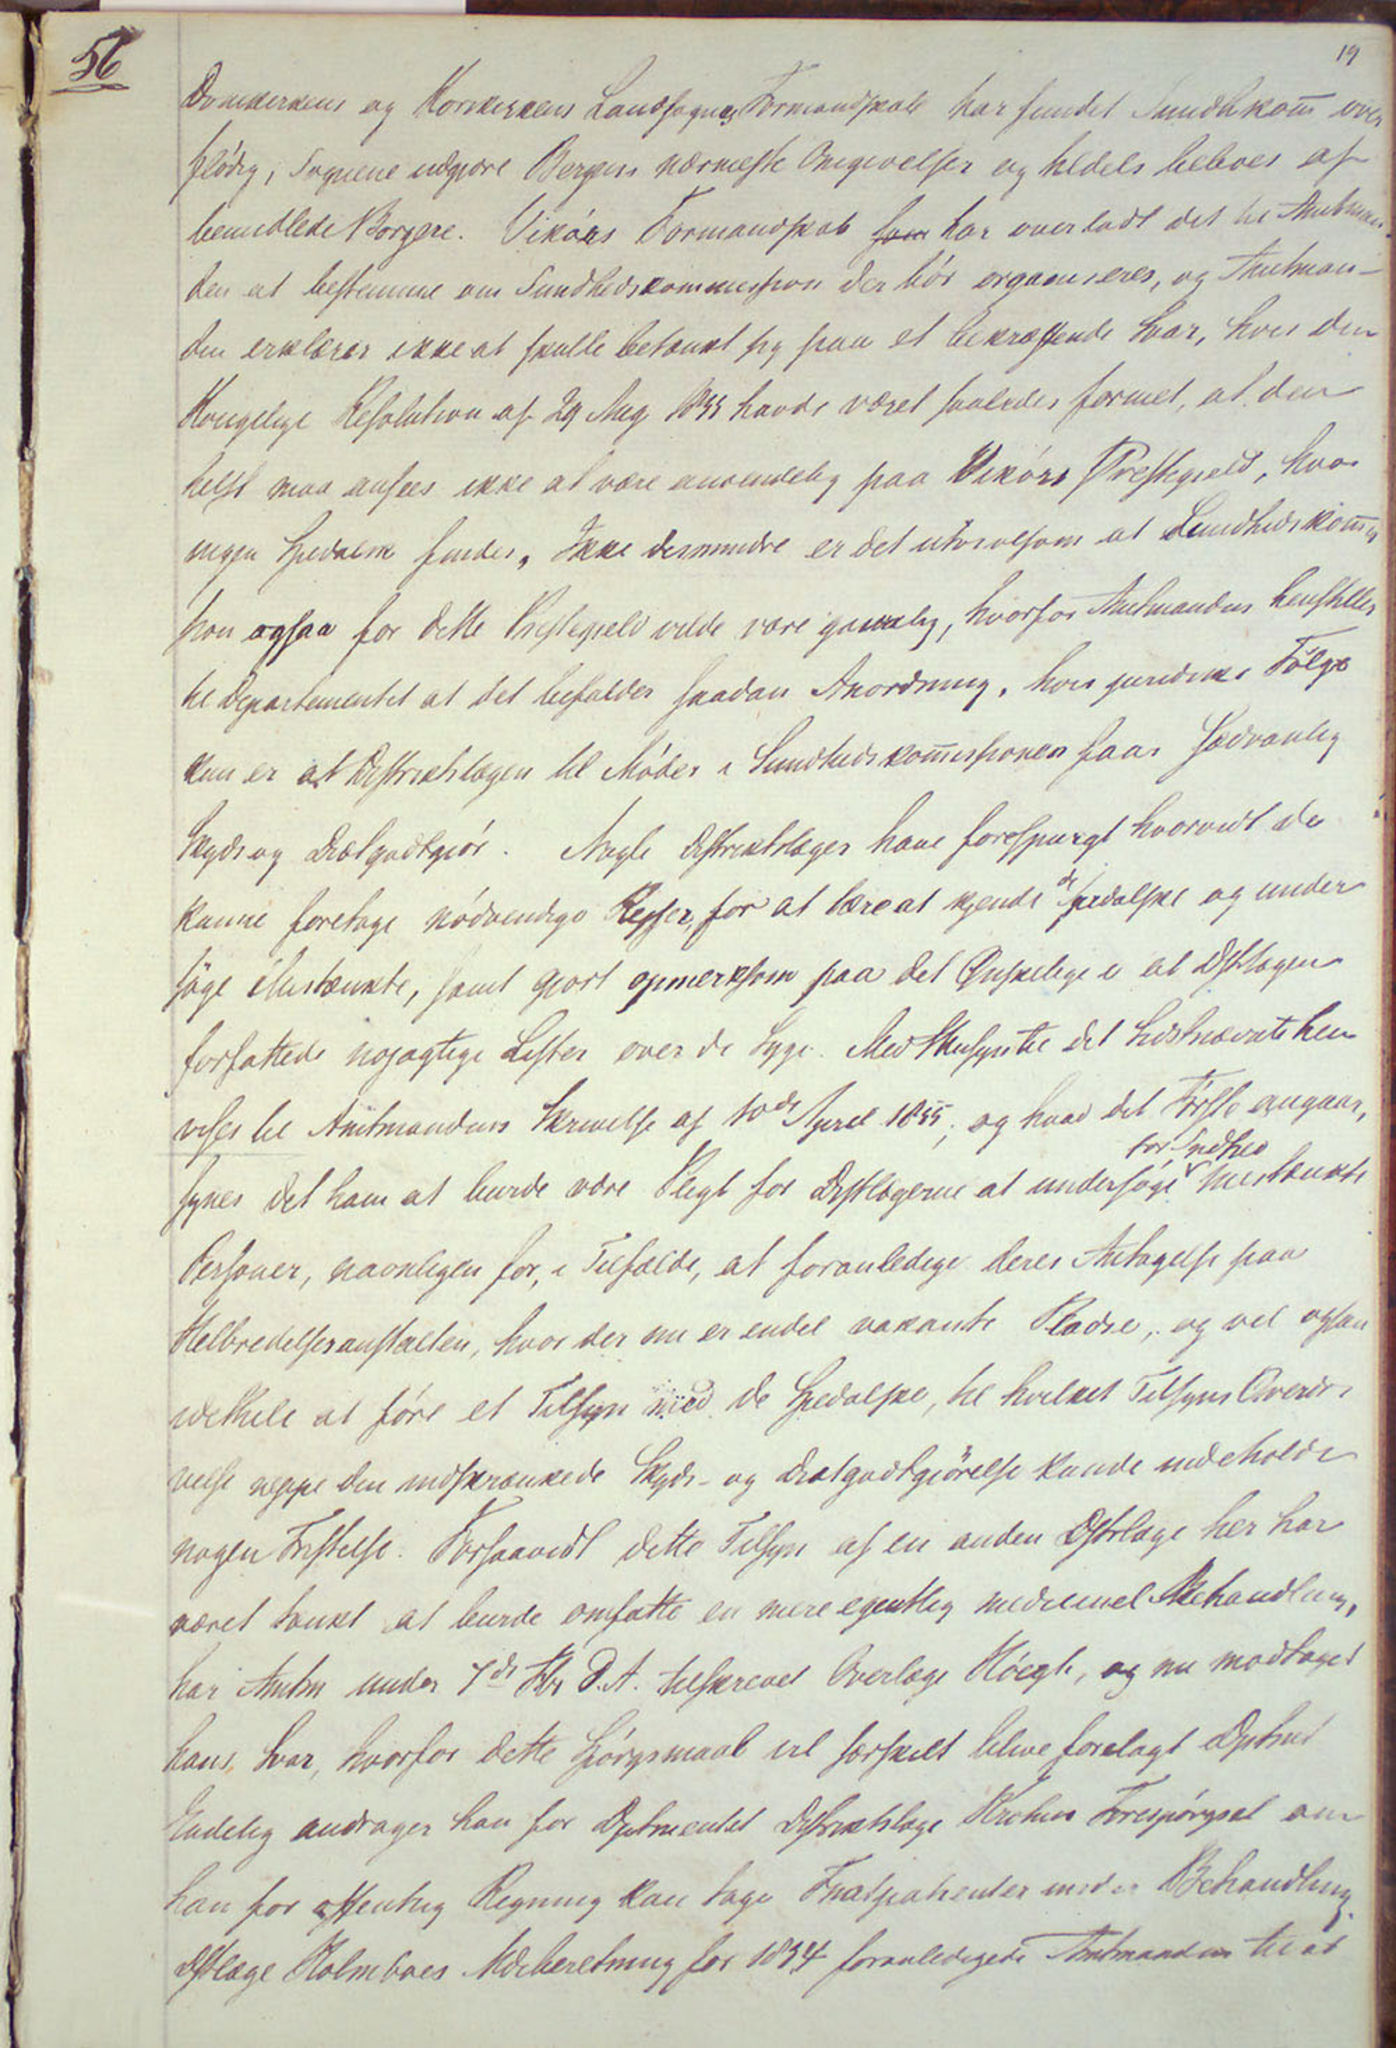 56
19
Domkirkens og Korskirkens Landsognes Formandskab har fundet Sundhkom̅ over
flödig, Sognene udgjøre Bergens nærmeste Omgivelser og tildels beboes af
bemidlede Borgere. Vikörs Formandskab som har overladt det til Amtman-
den at bestemme om Sundhedskommission der bör organiseres, og Amtman-
den erklærer ikke at skulle betænkt sig paa et bekræftende Svar, hvis den
Kongelige Resolution af 29 Aug 1855 havde været saaledes formet, at den
helst maa ansees ikke at være anvendelig paa Vikörs Præstegjeld, hvor
ingen Spedalsk findes. Ikke desmindre er det utvivlsomt at Sundhedskom̅is
sion ogsaa for dette Præstegjeld vilde være gavnlig, hvorfor Amtmanden henstiller
til Departementet at det befalder saadan Anordning, hvis juridiske Fölge
kun er at Distriktslægen til Möder i Sundhedskom̅issionen faar Sædvanlig
Skyds og Diætgodtgjör. Nogle Distriktslæger have forespurgt hvorvidt de
kunne foretage nödvendige Rejser, for at lære at kjende de Spedalske og under
söge Mistænkte, samt gjort opmerksom paa det Önskelige i at Dstlægen
forfattede nøjagtige Lister over de Syge. Med Hensyn til det Sidstnævnte hen
vises til Amtmandens Skrivelse af 10de April 1855, og hvad det Förste angaar,
synes det ham at burde være Pligt for Dstlægerne at undersöge for Spedhed Mistænkte
Personer, navnligen for, i Tilfælde, at foranledige deres Antagelse paa
Helbredelsesanstalten, hvor der nu er endel vakante Pladse, og vel ogsaa
idethele at före et Tilsyn med de Spedalske, til hvilket Tilsyns Overdri
velse neppe den indskrænkede Skyds- og Diætgodtgjörelse kunde indeholde
nogen Fristelse. Forsaavidt dette Tilsyn af en anden Dstrlæge her har
været tænkt at burde omfatte en mere egentlig medicinel Behandling,
har Amtm under 7de Fbr d.A. tilskrevet Overlæge Höegh, og nu modtaget
hans Svar, hvorfor dette Spörgsmaal vil særskilt blive forelagt Dptmt
Endelig andrager han for Dptmentet Distriktslæge Krohns Forespörgsel om
han for offentlig Regning kan tage Fnatpatienter under Behandling.
Dstlæge Holmboes Medberetning for 1854 foranledigede Amtmanden til at